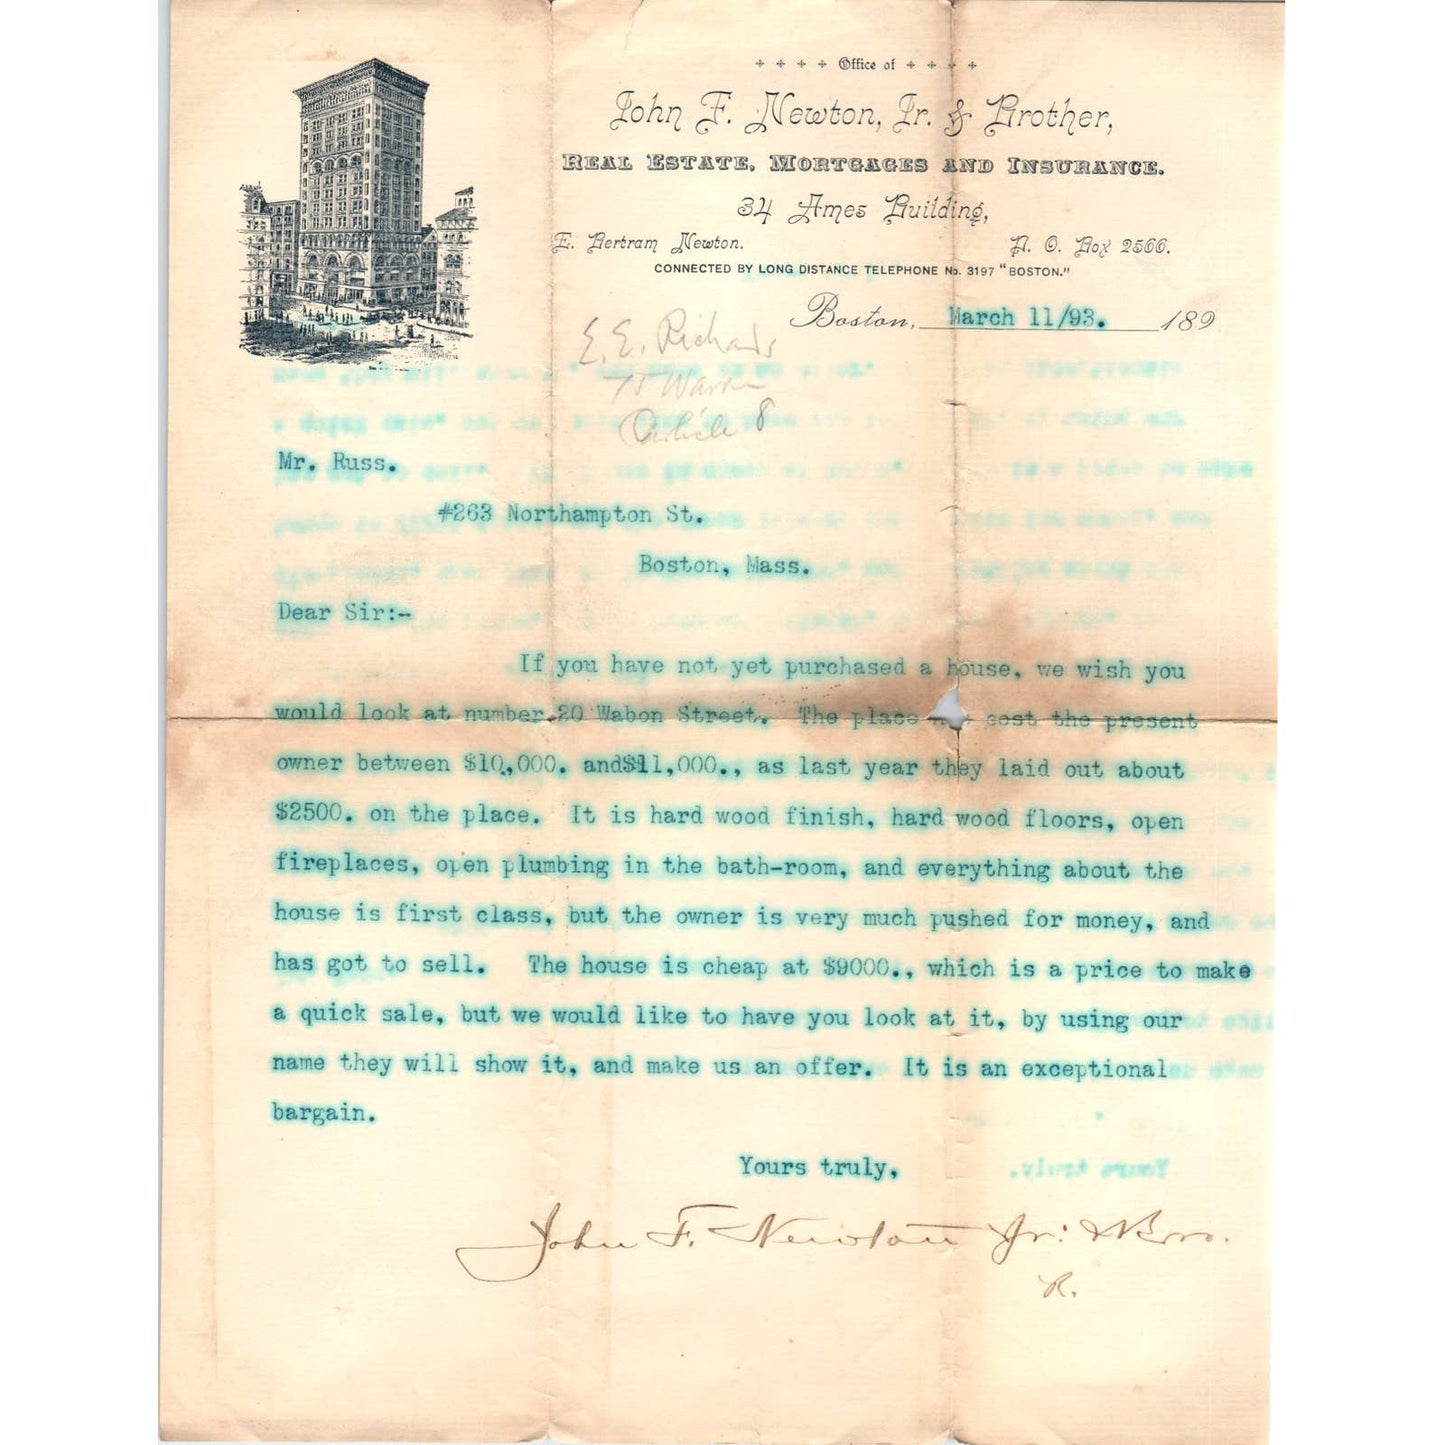 Office of
John F. Newton, Jr. & Brother,
REAL ESTATE, MORTGAGES AND INSURANCE.
34 Ames Building,
E. Bertram Newton.
P. O. Box 2566.
CONNECTED BY LONG DISTANCE TELEPHONE No. 3197 "BOSTON."
Boston, March 11/93. 189
E. E. Richards
75 Warren
Carlisle 8
Mr. Russ.
#263 Northampton St.
Boston, Mass.
Dear Sir:-
If you have not yet purchased a house, we wish you
would look at number 20 Wabon Street. The place cost the present
owner between $10,000. and$11,000., as last year they laid out about
$2500. on the place. It is hard wood finish, hard wood floors, open
fireplaces, open plumbing in the bath-room, and everything about the
house is first class, but the owner is very much pushed for money, and
has got to sell. The house is cheap at $9000., which is a price to make
a quick sale, but we would like to have you look at it, by using our
name they will show it, and make us an offer. It is an exceptional
bargain.
Yours truly,
John F. Newton Jr: & Bro.
R.